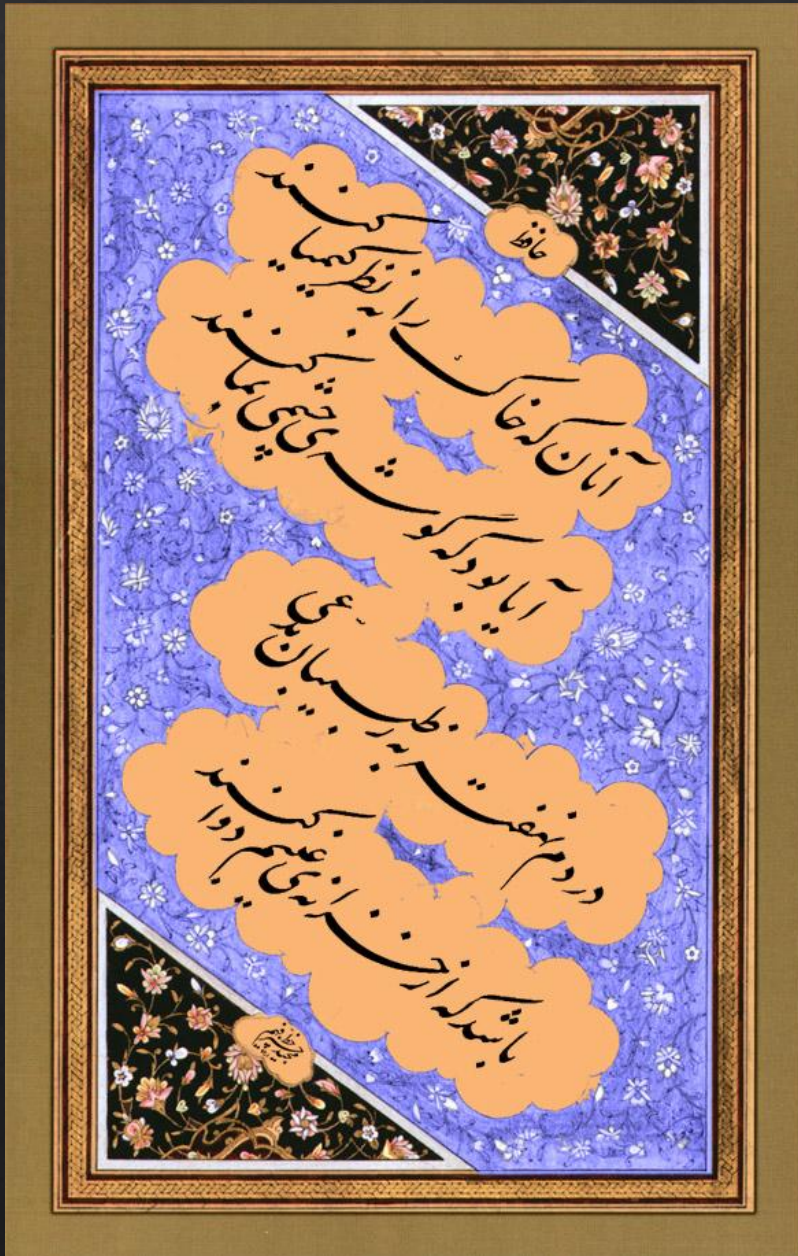 حافظ
آنان که خاک را به نظر کیمیا کنند
آیا بود که گوشه ی چشمی بما کنند
دردم نهفته به ز طبیبان مدعی
باشد که از خزانه ی غیبم دوا کنند